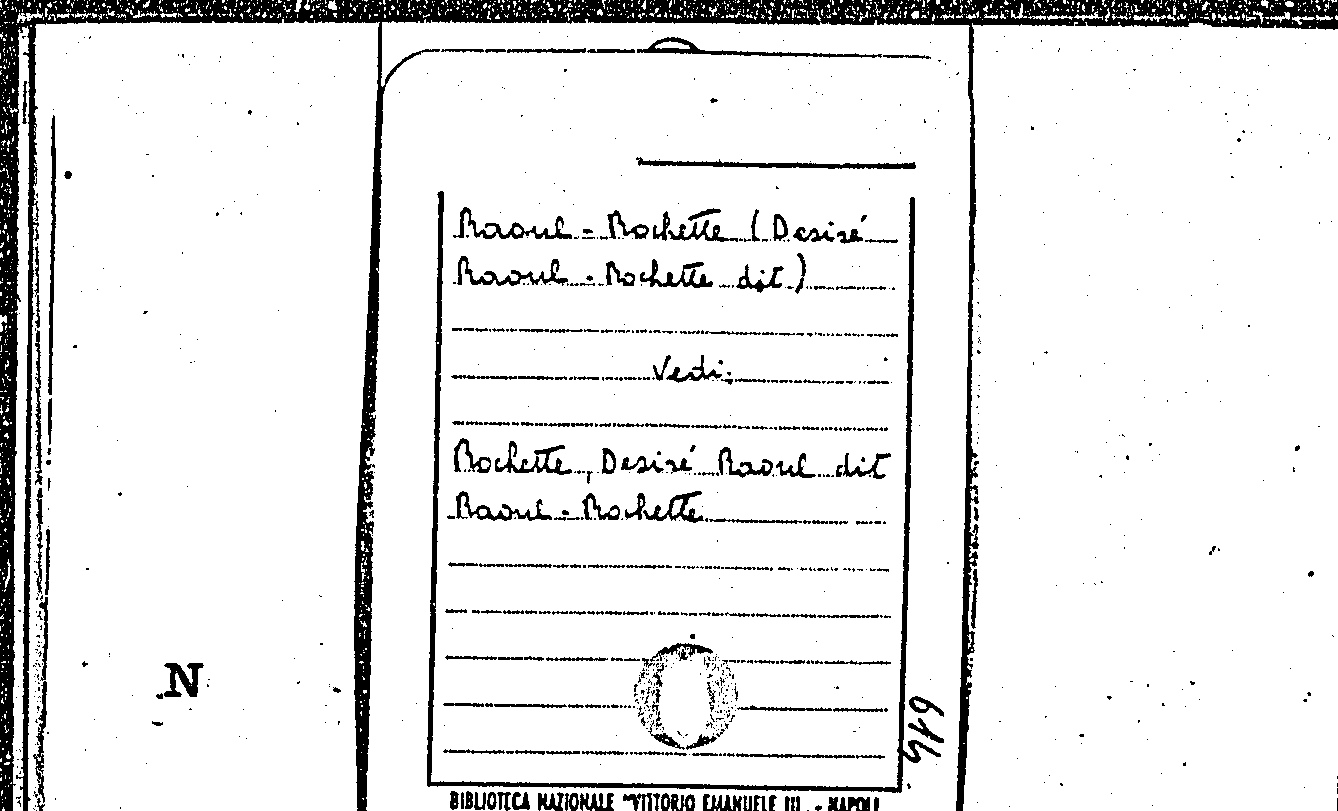 Raoul-Rochette (Desiré
Raoul-Rochette dit)
Vedi:
Rochette, Desiré Raoul dit
Raoul-Rochette
N
BIBLIOTECA NAZIONALE "VITTORIO EMANUELE III" - NAPOLI